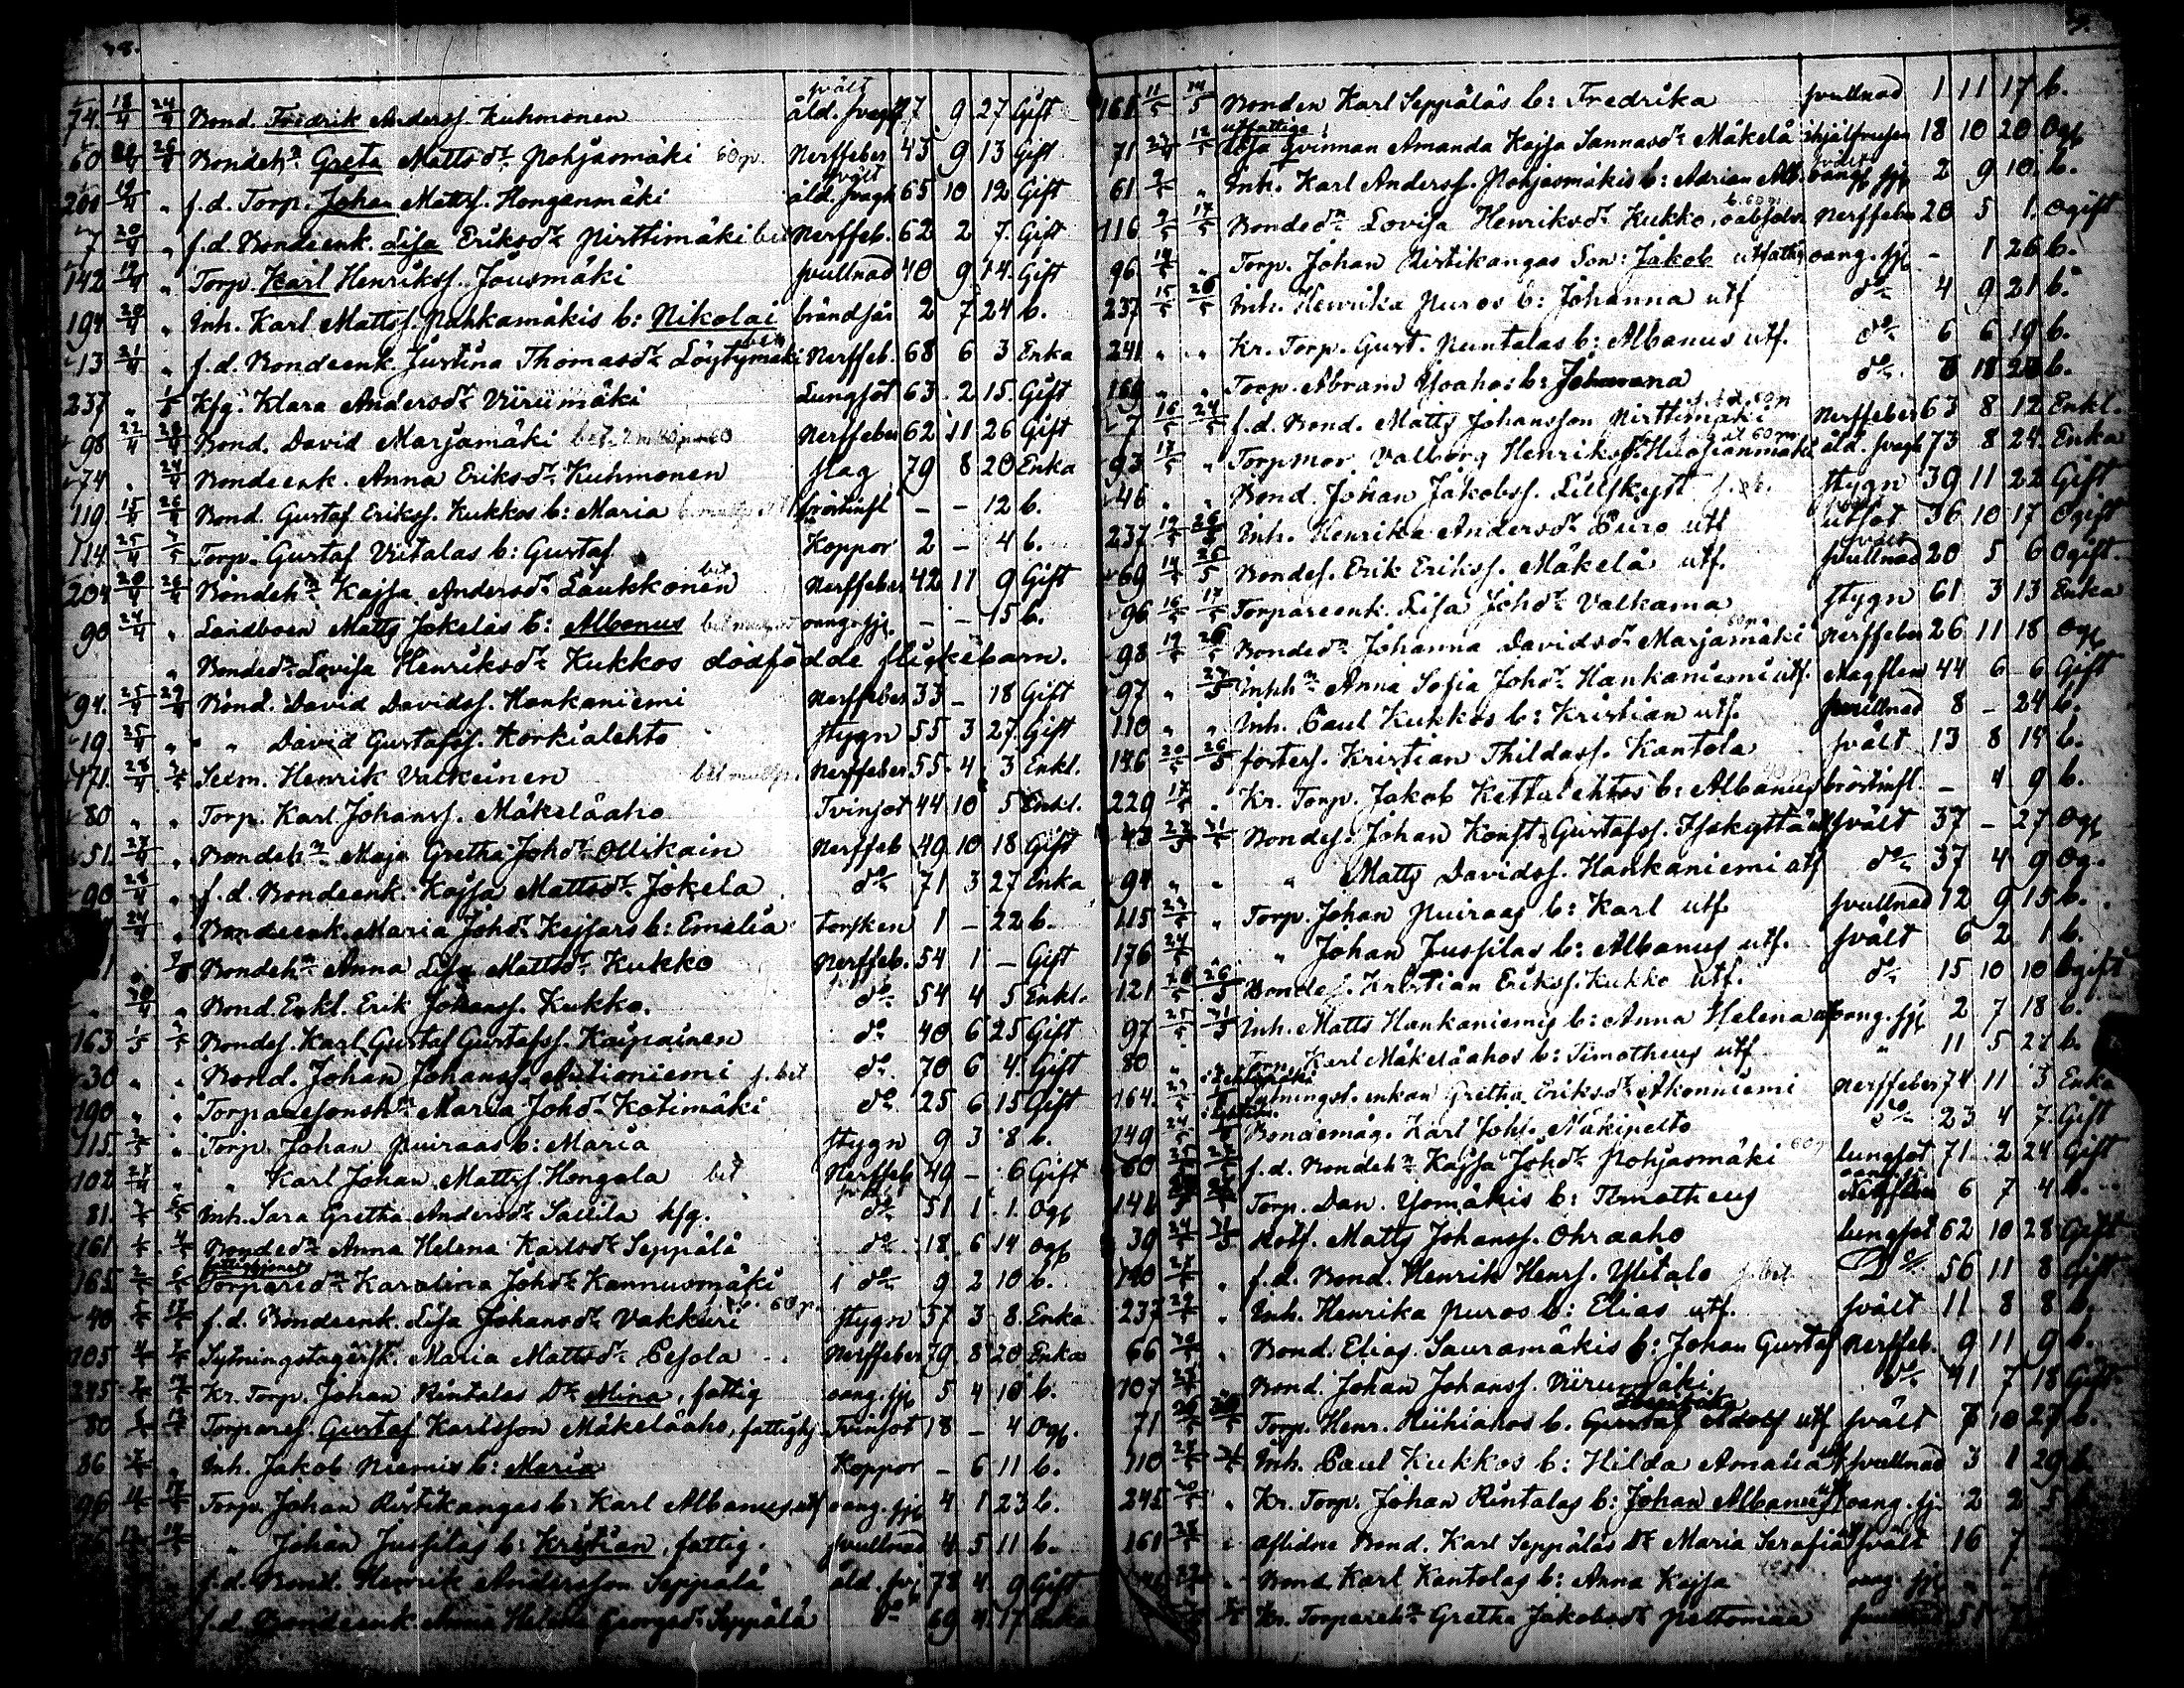 74. 18/4 24/4 Bond. Fredrik Anderss. Kuhmonen svält åld. svagh 77 9 27 Gift
60 26/4 Bondeh:n Greta Mattsd:r Pohjasmäki 60 p. Nerffeber 43 9 13 Gift
200 19/4 " f.d. Torp. Johan Mattss. Honganmäki svält åld. svagh 65 10 12 Gift
7 20/4 " f.d. Bondeenk. Lisa Eriksd:r Pirttimäki bet Nerffeb. 62 2 7. Gift
142 19/4 " Torp. Karl Henrikss. Jousmäki svullnad 40 9 14. Gift
194 20/4 " Inh. Karl Mattss. Pahkamäkis b: Nikolai brändsår 2 7 24 b.
13 21/4 " f.d. Bondeenk. Justina Thomasd:r Löytymäki bet Nerffeb. 68 6 3 Enka
237 " 1/5 Hfg. Klara Andersd:r Viirumäki Lungsot 63 2 15. Gift
98 22/4 Bond. David Marjamäki Nerffeber 62 11 26 Gift
74 " 24/4 Bondeenk. Anna Eriksd:r Kuhmonen slag 79 8 20 Enka
119 15/4 26/4 Bond. Gustaf Erikss. Kukkos b: Maria bröstinfl – – 12 b.
114 25/4 3/5 Torp. Gustaf Viitalas b: Gustaf Koppor 2 – 4 b.
204 20/4 26/4 Bondeh:n Kajsa Andersd:r Laukkonen bet Nerffeber 42 11 9 Gift
90 24/4 " Landboen Matts Jokelas b: Albanus oang. sj. – – 15 b.
" Bonded:n Lovisa Henriksd:r Kukkos dödfödde flickebarn.
94. 25/4 29/4 Bond. David Davidss. Hankaniemi Nerffeber 33 – 18 Gift
19 25/4 " " David Gustafss. Korkialehto stygn 55 3 27 Gift
171. 28/4 Sexm. Henrik Valkeinen Nerffeber 55. 4. 3 Enkl.
80 " " Torp. Karl Johanss. Mäkeläaho Tvinsot 44 10 5 Enkl.
51 27/4 " Bondeh:n Maja Gretha Joh:d:r Ollikain Nerffeb 49. 10 18 Gift
90 28/4 " f.d. Bondeenk. Kajsa Mattsd:r Jokela d:o 71 3 27 Enka
24/4 " Bondeenk. Maria Joh:d:r Kejsars b: Emelia torsken 1 – 22 b.
Bondeh:n Anna Lisa Mattsd:r Kukko Nerffeb. 54 1 – Gift
" 30/4 " Bond. Enkl. Erik Johanss. Kukko. d:o 54 4 5 Enkl.
163 1/5 3/5 Bondes. Karl Gustaf Gustafss. Kaipainen d:o 40 6 25 Gift
30 " " Bond. Johan Johanss. Autioniemi f. bet d:o. 70 6 4. Gift
190 " " Torparesonsh:n Maria Joh:d:r Kotimäki d:o 25 6 15 Gift
115. " Torp. Johan Puiraas b: Maria stygn 9 3 8 b.
102 27/4 " " Karl Johan Mattss. Hongala bet Nerffeb 49 – 6 Gift
81. Inh. Sara Gretha Andersd:r Sallila hfg. d:o 51 1 1. Ogf
161 Bonded:n Anna Helena Karlsd:r Seppälä d:o 18 6 14 Ogf
165 Torpared:n Karolina Joh:d:r Kannusmäki d:o 9 2 10 b.
40 f.d. Bondeenk. Lisa Johansd:r Vakkuri 60 p. stygn 57 3 8. Enka
105 Sytningstagersk. Maria Mattsd:r Pesola Nerffeber 79. 8 20 Enka
245 Kr. Torp. Johan Rintalas d:r Mina, fattig oang. sj 5 4 10 b.
80 Torpares. Gustaf Karlsson Mäkeläaho, fattighj Tvinsot 18 – 4 Ogf.
86 " Inh. Jakob Niemis b: Maria Koppor – 6 11 b.
96 Torp. Johan Ristikangas b: Karl Albanus, utf oang. sj 4 1 23 b.
" Johan Jussilas b: Kristian, fattig. svullnad 4 5 11 b.
f.d. Bond. Henrik Andersson Seppälä åld. sv 78 4 9 Gift
f.d. Bondeenk. Anna Helena Georgsd:r Seppälä d:o 69 4 17 Enka
161 11/5 Bonden Karl Seppäläs b: Fredrika svullnad 1 11 17 b.
71 utfattige Lösa Qvinnan Amanda Kajsa Sannasd:r Mäkelä ihjälfrusen 18 10 20 Ogf
61 " Inh. Karl Anderss. Pohjasmäkis b: Adrian Alb. svält oang. sj 2 9 10. b.
116 17/5 Bonded:n Lovisa Henriksd:r Kukko Nerffeber 20 5 1. Ogift
96. " Torp. Johan Ristikangas Son: Jakob utfattig oang. sj – 1 26 b.
237 15/5 26/5 Inh. Henrika Puros b: Johanna utf d:o 4 9 21 b.
241 " " Kr. Torp. Gust. Puntalas b: Albanus utf. d:o 6 6 19 b.
169 " " Torp. Abram Yoahos b: Johanna d:o
7 16/5 24/5 f.d. Bond. Matts Johansson Pirttimäki Nerffeber 63 8 12 Enkl.
93 17/5 " Torpmor. Valborg Henriksd:r åld. svagh 73 8 24. Enka
46 " " Bond. Johan Jakobss. Lillskytt stygn 39 11 22 Gift
237 19/5 26/5 Inh. Henrika Andersd:r Puro utf utsot 36 10 17 Ogift
69 Bondes. Erik Erikss. Mäkelä utf. svält svullnad 20 5 6 Ogift.
96 16/5 17/5 Torpareenk. Lisa Joh:d:r Valkama stygn 61 3 13 Enka
98 19/5 26/5 Bonded:n Johanna Davidsd:r Marjamäki Nerffeber 26 11 18 Ogf
97 " 27/5 Inhh:n Anna Sofia Joh:d:r Hankaniemi utf. Magflen 44 6 6 Gift
110 " " Inh. Paul Kukkos b: Kristian utf. svullnad 8 – 24 b.
146 20/5 26/5 fosters. Kristian Thildass. Kantola svält 13 8 14 b.
229 17/5 " Kr. Torp. Jakob Kettulehtos b: Albanus bröstinfl. – 4 9 b.
43 Bondes. Johan Konst. Gustafss. Isokyttä utf svält 37 – 27. Ogf
94 " " " Matts Davidss. Hankaniemi utf d:o 37 4 9 Og.
115 " Torp. Johan Puiraas b: Karl utf svullnad 12 9 15 b.
176 24/5 " Johan Jussilas b: Albanus utf. svält 6 2 1 b.
121 Bondes. Kristian Erikss. Kukko utf. d:o 15 10 10 Ogift
97 25/5 31/5 Inh. Matts Hankaniemis b: Anna Helena utf oang. sj 2 7 18 b.
80 " Torp. Karl Mäkeläahos b: Timotheus utf " 11 5 27 b.
164. Sytningst. enkan Gretha Eriksd:r Akonniemi Nerffeber 74 11 3 Enka
149 24/5 Bondemåg. Karl Johs. Mäkipelto d:o 23 4 7. Gift
60 f.d. Bondeh:n Kajsa Joh:d:r Pohjasmäki lungsot 71. 2 24 Gift
146 Torp. Dan. Yomäkis b: Timotheus 6 7 4 b.
39 24/5 31/5 Rotf. Matts Johanss. Ohraaho lungsot 62 10 28 Gift
190 " f.d. Bond. Henrik Henrs. Ylitalo f. bet D:o 56 11 8 Gift
237 " Inh. Henrika Puros b: Elias utf. svält 11 8 8 b.
66 " Bond. Elias Sauramäkis b: Johan Gustaf Nerffeb. 9 11 9 b.
107 Bond. Johan Johanss. Viirumäki d:o 41 7 18 Gift
71 Torp. Henr. Riihiahos b. Gustaf Adolf utf svält 7 10 27 b.
110 Inh. Paul Kukkos b: Hilda Amalia utf svullnad 3 1 29 b
245 " Kr. Torp. Johan Rintalas b: Johan Albanus utf oang. sj 2 2 5 b
161 " Aflidne Bond. Karl Seppäläs d:r Maria Serafia utf svält 16 7
" Bond. Karl Kantolas b: Anna Kajsa oang. sj
Kr. Torpareh:n Gretha Jakobsd:r Peltomaa svullnad 51